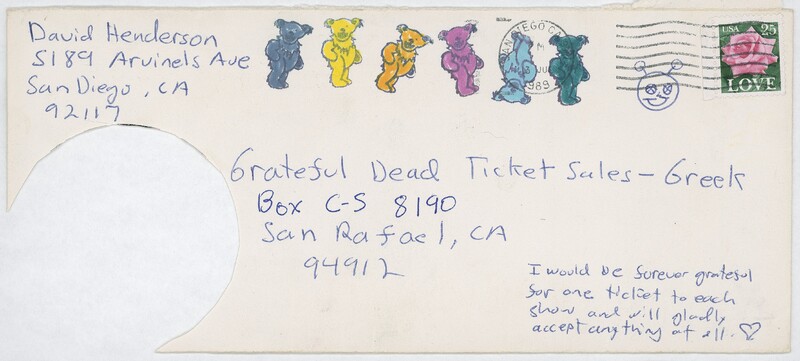 David Henderson
5189 Arvinels Ave
San Diego, CA
92117
SAN DIEGO CA
1989
USA 25
LOVE
Grateful Dead Ticket Sales - Greek
Box C-S 8190
San Rafael, CA
94912
I would be forever grateful
for one ticket to each
show and will gladly
accept anything at all. ♡